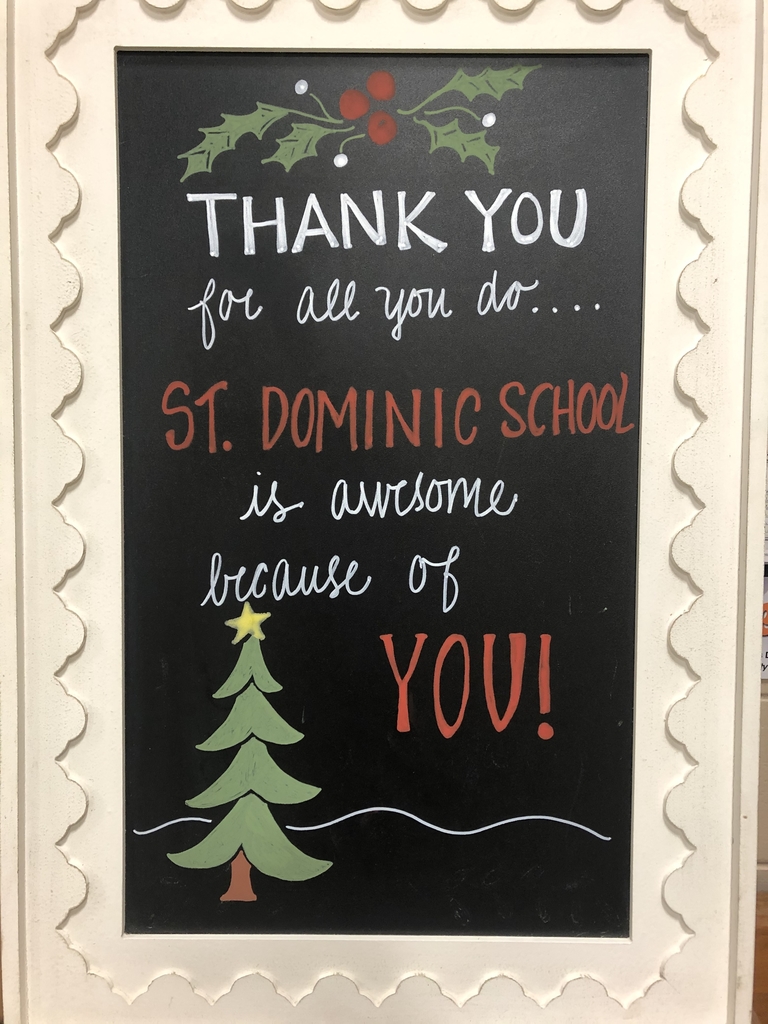 THANK YOU
for all you do....
ST. DOMINIC SCHOOL
is awesome
because of
YOU!